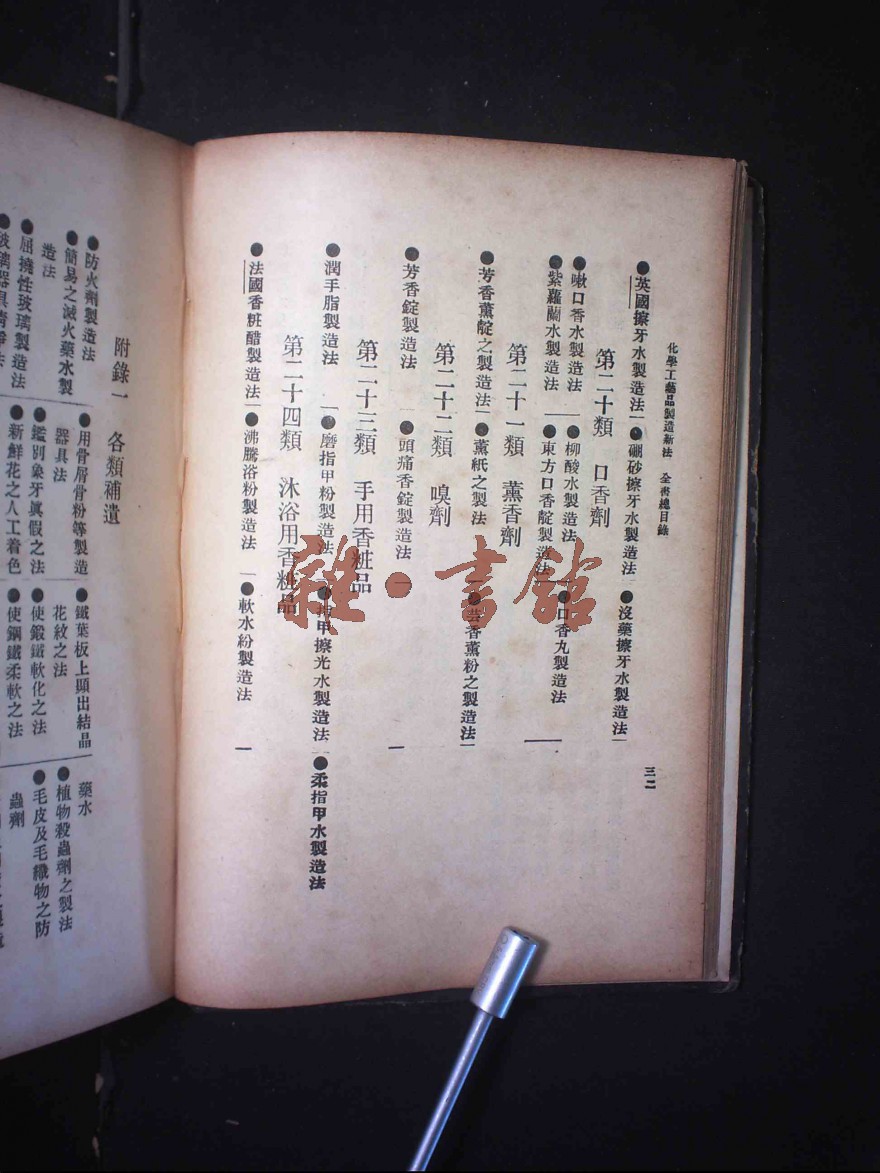 化學工藝品製造新法 全書總目錄
三二
●英國擦牙水製造法 ●硼砂擦牙水製造法 ●沒藥擦牙水製造法
第二十類 口香劑
●嗽口香水製造法 ●柳酸水製造法 ●口香丸製造法
●紫蘿蘭水製造法 ●東方口香靛製造法
第二十一類 薰香劑
●芳香薰靛之製造法 ●薰紙之製法 ●芸香薰粉之製造法
第二十二類 嗅劑
●芳香錠製造法 ●頭痛香錠製造法
第二十三類 手用香粧品
●潤手脂製造法 ●磨指甲粉製造法 ●指甲擦光水製造法 ●柔指甲水製造法
第二十四類 沐浴用香粧品
●法國香粧醋製造法 ●沸騰浴粉製造法 ●軟水粉製造法
附錄一 各類補遺
●防火劑製造法 ●用骨屑骨粉等製造 ●鐵葉板上顯出結晶 藥水
●簡易之滅火藥水製 器具法 花紋之法 ●植物殺蟲劑之製法
造法 ●鑑別象牙真假之法 ●使鍛鐵軟化之法 ●毛皮及毛織物之防
●屈撓性玻璃製造法 ●新鮮花之人工着色 ●使鋼鐵柔軟之法 蟲劑
雜·書館